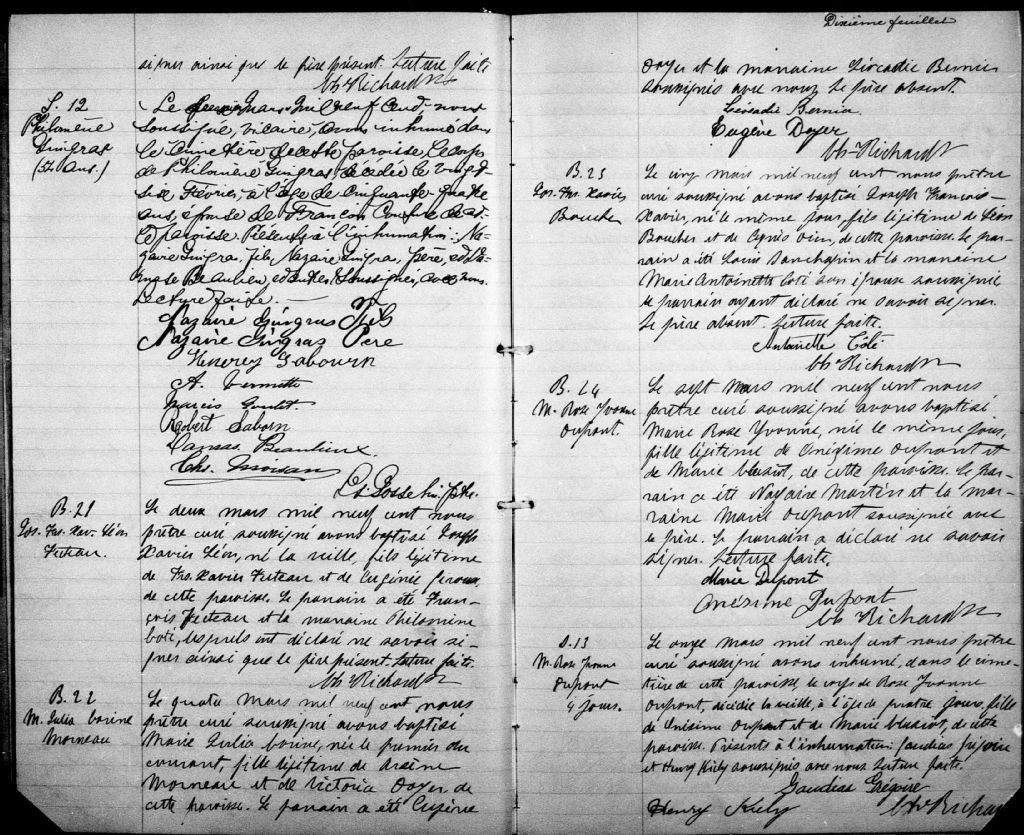 signer ainsi que le père présent. Lecture faite
Ch Richard
S. 12
Philomène
Gingras
(54 Ans.)
Le premier Mars Mil neuf Cent, nous
soussigné, vicaire, avons inhumé dans
le Cimetière de cette paroisse, le corps
de Philomène Gingras décédée le vingt-
de Février, à l'âge de cinquante quatre
ans, épouse de François de cet-
te paroisse. Présents à l'inhumation: Na-
zaire Gingras, fils, Nazaire Gingras, père,
Beaulieu, et autres soussignés avec nous.
Lecture faite.
Nazaire Gingras Fils
Nazaire Gingras Père
Henrey Gabourn
A. Vermette
Francis Goulet
Robert Saborn
Damas Beaulieu
Chs.
B. 21
Jos. Frs. Xav. Léon
Feuteau.
Le deux mars mil neuf cent nous
prêtre curé soussigné avons baptisé Joseph
Xavier Léon, né la veille, fils légitime
de Frs. Xavier Feuteau et de Eugénie Giroux,
de cette paroisse. Le parrain a été Fran-
çois Feuteau et la marraine Philomène
Coté, lesquels ont déclaré ne savoir si-
gner ainsi que le père présent. Lecture faite.
Ch Richard
B. 22
M. Julia Corinne
Morneau
Le quatre mars mil neuf cent nous
prêtre curé soussigné avons baptisé
Marie Julia Corinne, née le premier du
courant, fille légitime de Arsène
Morneau et de Victoria Doyer de
cette paroisse. Le parrain a été Eugène
Dixième feuillet
Doyer et la marraine Léocadie Bernier
soussignés avec nous. Le père absent.
Léocadie Bernier
Eugène Doyer
Ch Richard
B. 23
Jos. Frs. Xavier
Boucher
Le cinq mars mil neuf cent nous prêtre
curé soussigné avons baptisé Joseph François-
Xavier, né le même jour, fils légitime de Léon
Boucher et de Agnès, de cette paroisse. Le par-
rain a été Louis et la marraine
Marie Antoinette Coté son épouse soussignée
le parrain ayant déclaré ne savoir signer.
Le père absent. Lecture faite.
Antoinette Côté
Ch Richard
B. 24
M. Rose Yvonne
Dupont.
Le sept mars mil neuf cent nous
prêtre curé soussigné avons baptisé
Marie Rose Yvonne, née le même jour,
fille légitime de Onésime Dupont et
de Marie, de cette paroisse. Le par-
rain a été Nazaire Martin et la mar-
raine Marie Dupont soussignée avec
le père. Le parrain a déclaré ne savoir
signer. Lecture faite.
Marie Dupont
Onésime Dupont
Ch Richard
S. 13
M. Rose Yvonne
Dupont
4 jours.
Le onze mars mil neuf cent nous prêtre
curé soussigné avons inhumé, dans le cime-
tière de cette paroisse, le corps de Rose Yvonne
Dupont, décédée la veille, à l'âge de quatre jours, fille
de Onésime Dupont et de Marie, de cette
paroisse. Présents à l'inhumation: Gaudias Grégoire
et Henry Kiely soussignés avec nous. Lecture faite.
Gaudias Grégoire
Henry Kiely
Ch Richard